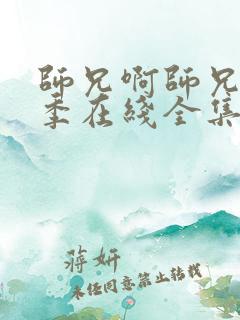 師兄啊師兄
季在綫全集
蔣妍
未經同意禁止轉載